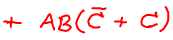 + AB(C̅ + C)